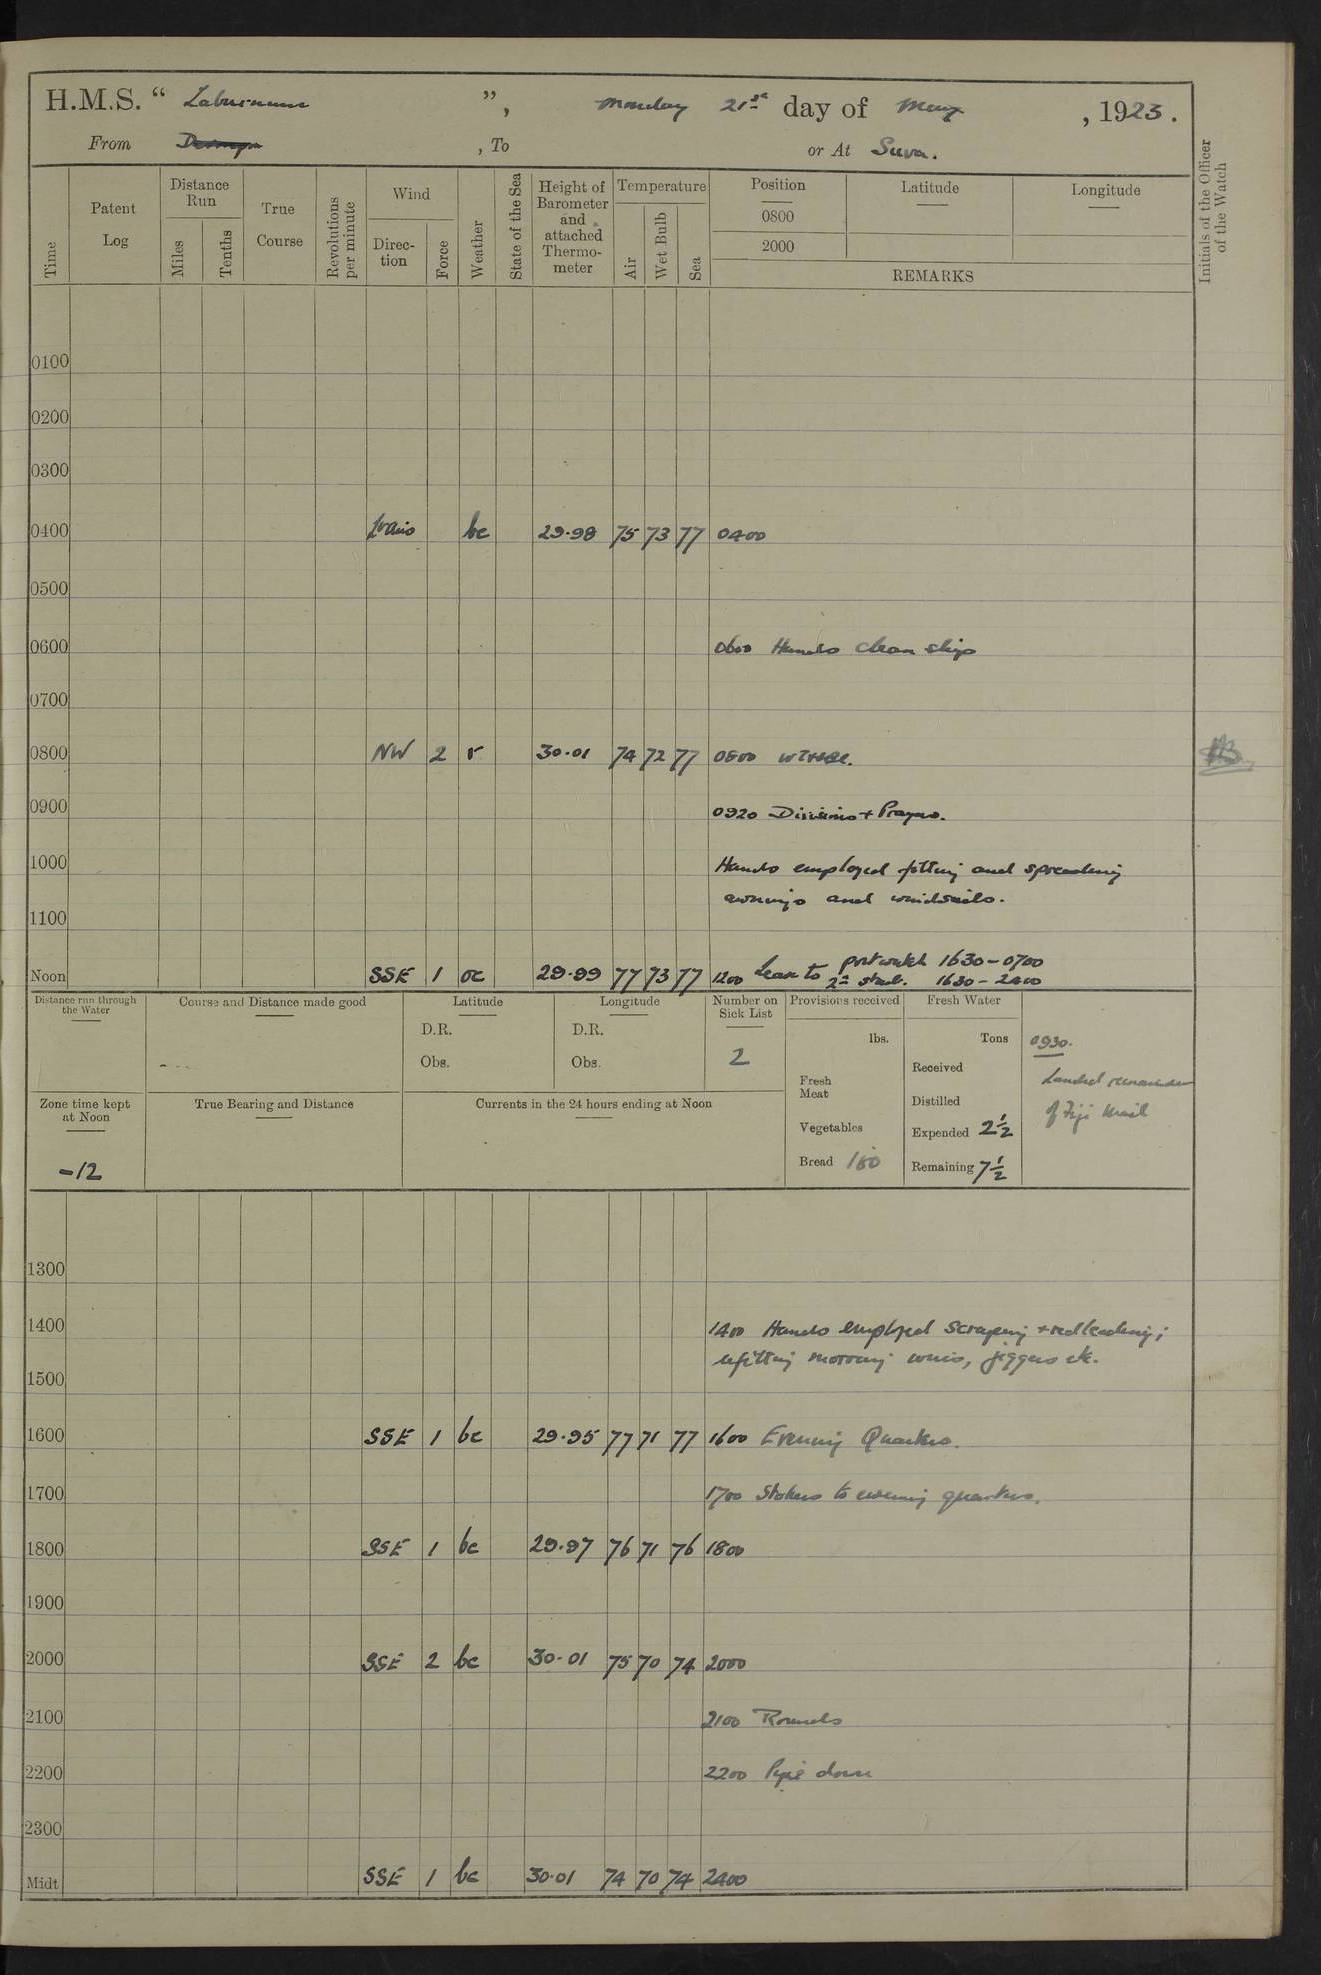 H.M.S. “ Laburnum ”, Monday 21st day of May , 1923.
From , To or At Suva.
Time
Patent Log
Distance Run
Miles
Tenths
True Course
Revolutions per minute
Wind
Direc-tion
Force
Weather
State of the Sea
Height of Barometer and attached Thermo-meter
Temperature
Air
Wet Bulb
Sea
Position
0800
2000
Latitude
Longitude
REMARKS
Initials of the Officer of the Watch
0100
0200
0300
0400 bc 29.98 75 73 77 0400
0500
0600 0600 Hands clean ship
0700
0800 NW 2 r 30.01 74 72 77 0800
0900 0920 Divisions + Prayers.
1000 Hands employed fitting and spreading
awnings and windsails.
1100
Noon SSE 1 oc 29.99 77 73 77 1200 Leave to port watch 1630-0700
2nd starb. 1630-2200
Distance run through the Water
Course and Distance made good
Latitude
D.R.
Obs.
Longitude
D.R.
Obs.
Number on Sick List
2
Provisions received
lbs.
Fresh Meat
Vegetables
Bread 180
Fresh Water
Tons
Received
Distilled
Expended 2½
Remaining 7½
0930.
Landed remainder
of Fiji Mail
Zone time kept at Noon
-12
True Bearing and Distance
Currents in the 24 hours ending at Noon
1300
1400 1400 Hands employed scraping + redleading;
refitting mooring wires, jiggers etc.
1500
1600 SSE 1 bc 29.95 77 71 77 1600 Evening Quarters.
1700 1700 Stokers to evening quarters.
1800 SSE 1 bc 29.97 76 71 76 1800
1900
2000 SSE 2 bc 30.01 75 70 74 2000
2100 2100 Rounds
2200 2200 Pipe down
2300
Midt SSE 1 bc 30.01 74 70 74 2400